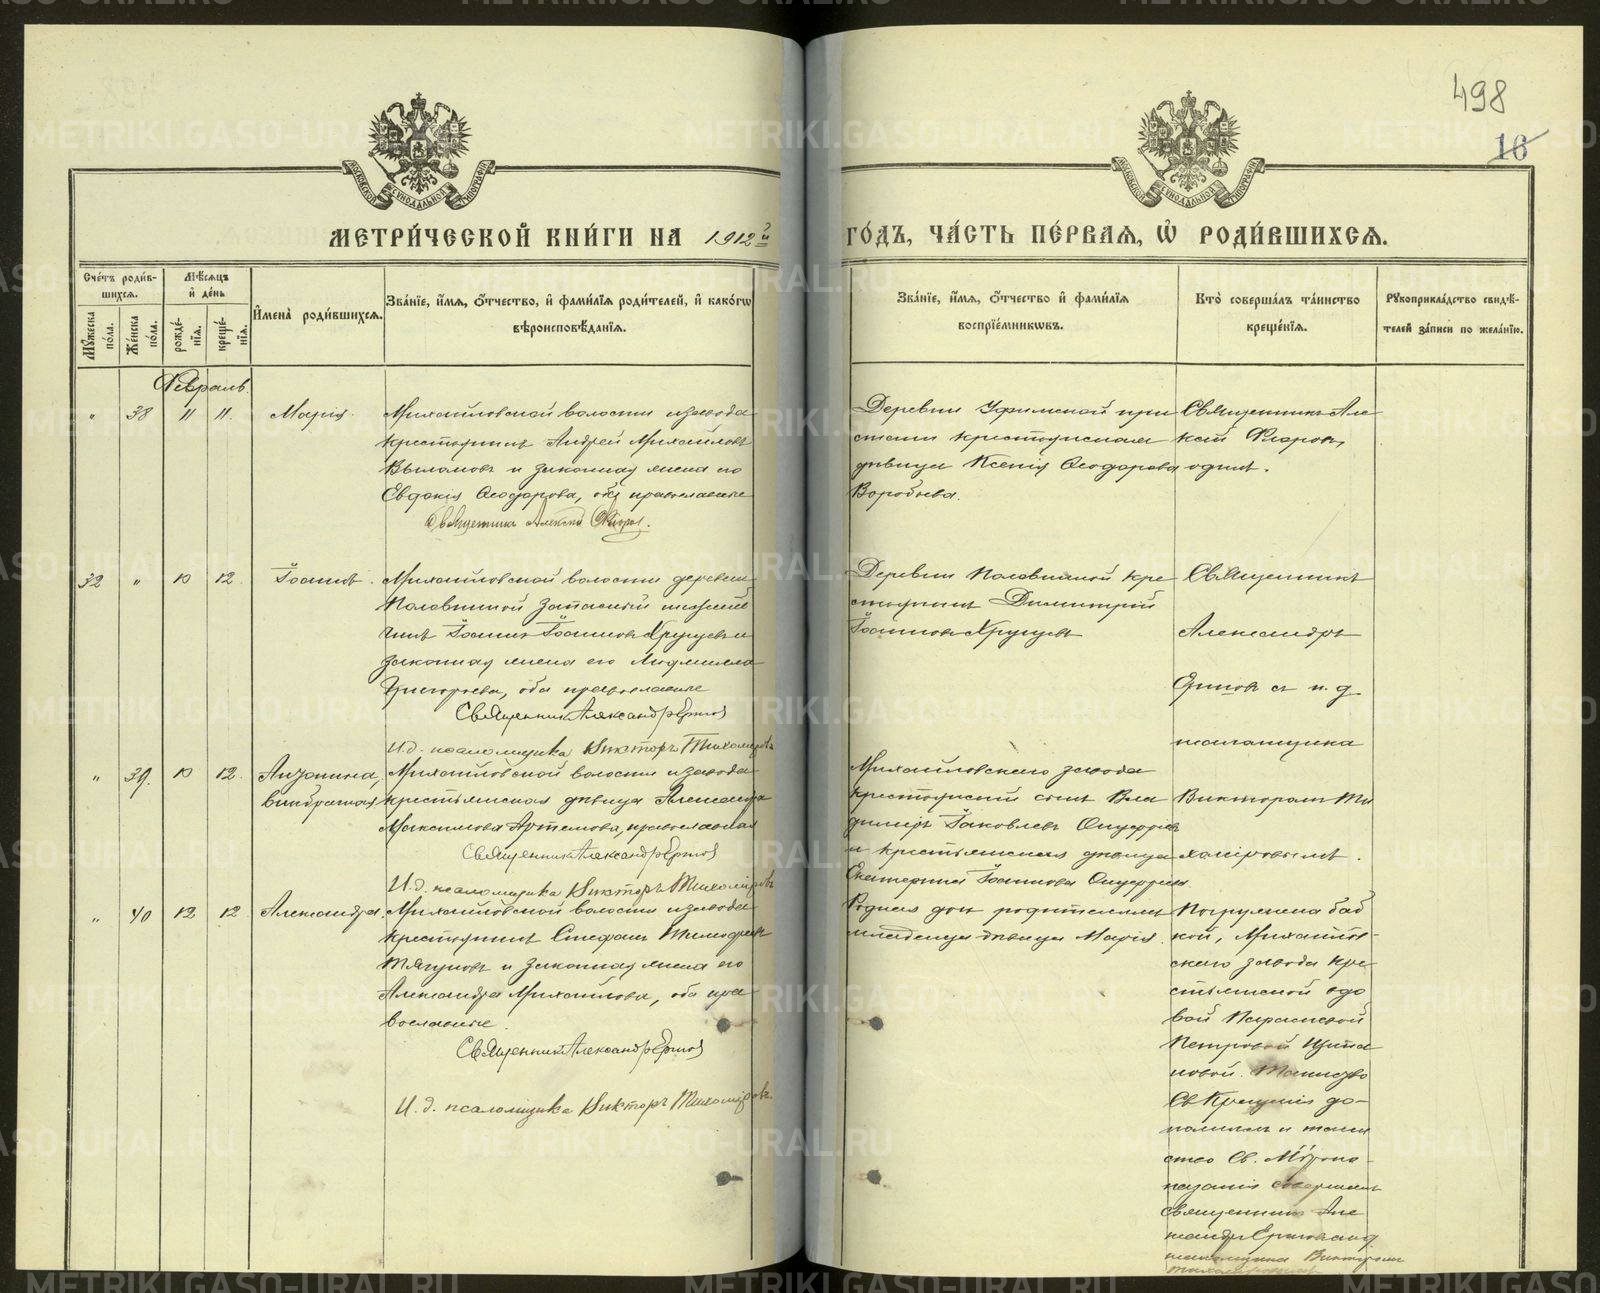 498
16
МЕТРИ́ЧЕСКОЙ КНИ́ГИ НА 1912 й
ГО́ДЪ, ЧА́СТЬ ПЕ́РВАЯ, Ѡ РОДИ́ВШИХСЯ.
Сче́тъ роди́в-
шихся.
Мꙋ́жеска по́ла.
Же́нска по́ла.
Мѣ́сяцъ
и де́нь
рожде́-
нїя.
креще́-
нїя.
И҆мена̀ роди́вшихся.
Зва́нїе, и҆́мя, ѻ҆́тчество, и҆ фами́лїя роди́телей, и҆ како́гѡ
вѣроисповѣ́данїя.
Зва́нїе, и҆́мя, ѻ҆́тчество и҆ фами́лїя
воспрїе́мникѡвъ.
Кто̀ соверша́лъ та́инство
креще́нїя.
Рꙋкоприкла́дство свидѣ́-
телей за́писи по жела́нїю.
Февраль.
" 38 11 11. Марія.
Михайловской волости и завода
крестьянинъ Андрей Михайловъ
и законная жена его
Евдокія Ѳеодорова, оба православные
Священникъ Алексій Флоров.
Деревни Уфимской при
стани крестьянская
дѣвица Ксенія Ѳеодорова
Воробьева.
Священникъ Але
ксій Флоровъ,
одинъ.
32 " 10 12. Іоаннъ.
Михайловской волости деревни
Половинной запасный
Іоаннъ Іоанновъ Хрущевъ и
законная жена его Людмилла
Григорьева, оба православные
Священник Александр Ершов
И.д. псаломщика Викторъ Тихоміровъ
Деревни Половинной кре
стьянинъ Димитрій
Іоанновъ Хрущевъ
Священникъ
Александръ
Ершовъ съ и. д.
псаломщика
Викторомъ Ти
хоміровымъ.
" 39. 10 12. Антонина,
внебрачная
Михайловской волости и завода
крестьянская дѣвица Александра
Максимова Артемова, православная
Священник Александр Ершов
И.д. псаломщика Викторъ Тихоміровъ
Михайловскаго завода
крестьянскій сынъ Вла
диміръ Іаковлевъ
и крестьянская дѣвица
Екатерина Іоаннова
" 40 12. 12 Александра.
Михайловской волости и завода
крестьянинъ Стефанъ Тимофеевъ
Тягуновъ и законная жена его
Александра Михайлова, оба пра
вославные.
Священник Александр Ершов
И.д. псаломщика Викторъ Тихоміровъ.
Родная дочь родителямъ
младенца дѣвица Марія.
Погружена баб
кой, Михайлов-
скаго завода кре
стьянской вдо
вой Параскевой
Петровой Щипа
новой. Таинство
Св. Крещенія до-
полнилъ и таин
ство Св. Мѵропо-
мазанія совершилъ
Священникъ Але
ксандръ Ершовъ и.д.
псаломщика Викторомъ
Тихоміровымъ
METRIKI.GASO-URAL.RU